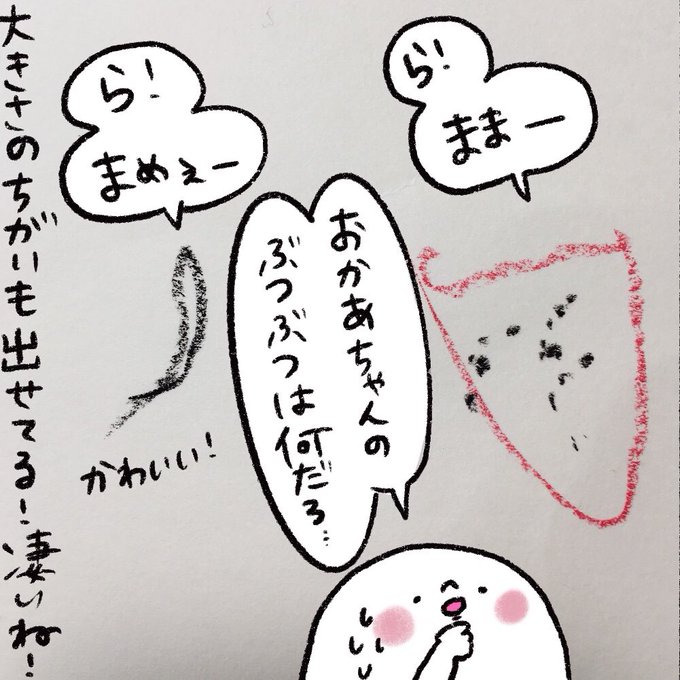 ら!
ままー
ら!
まめぇー
おかあちゃんの
ぶつぶつは何だろ…
かわいい!
大きさのちがいも出せてる!凄いね!